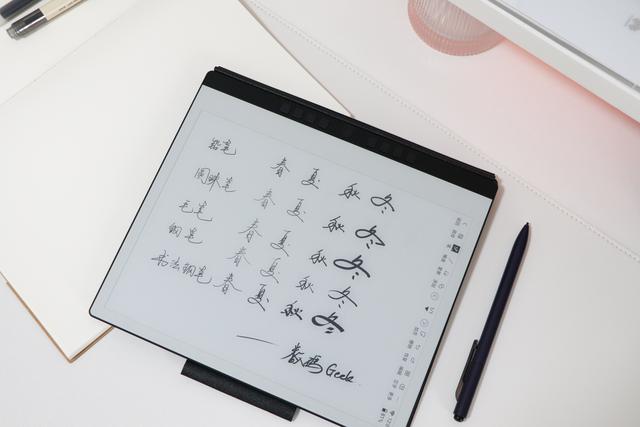 铅笔 春 夏 秋 冬
圆珠笔 春 夏 秋 冬
毛笔 春 夏 秋 冬
钢笔 春 夏 秋 冬
书法钢笔 春 夏 秋 冬
— 数码Geek.